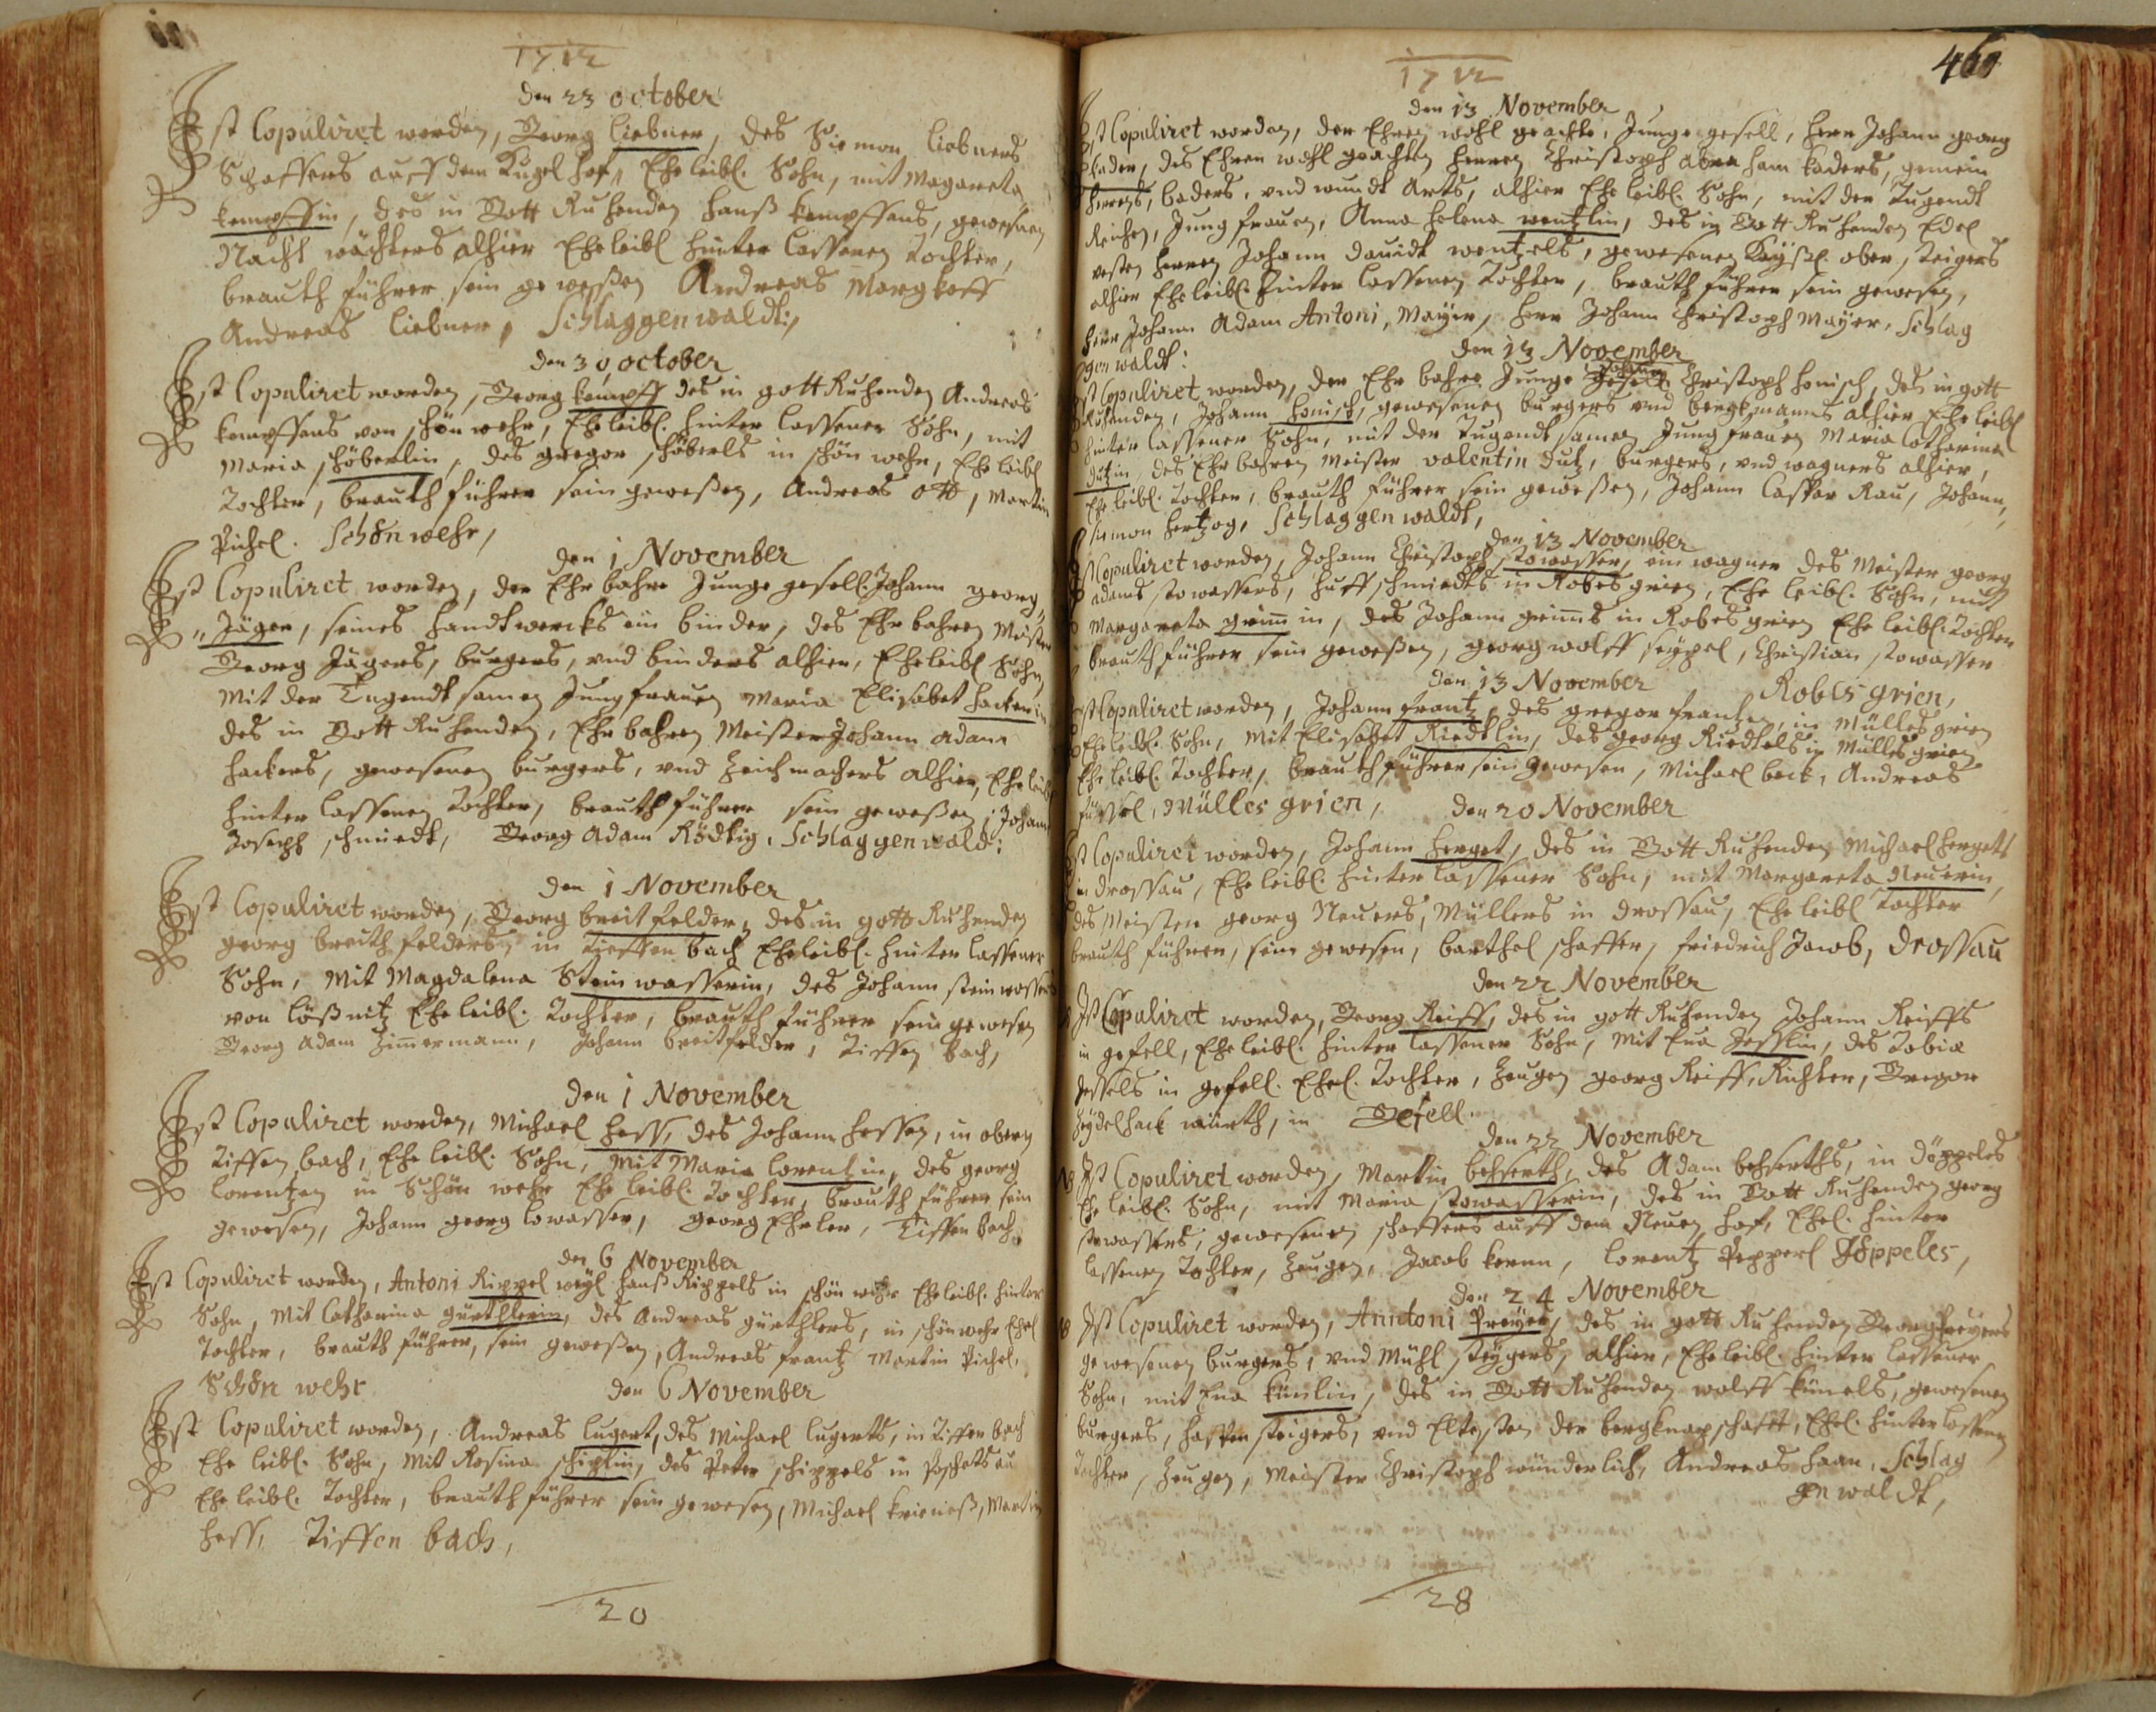 1712
den 23 october
Ist Copuliret worden, Georg Liebner, des Siemon Liebners
Schaffers auff dem Kugel hof, Eheleibl. Sohn, mit Magareta
kempffin, des in Gott Ruhenden Hanß kempffens, gewesenen
Nacht wächters alhier Eheleibl hinter lassenen Tochter,
brauth führer sein geweßen Andreas
Andreas Liebner, Schlaggenwaldt:/
den 30 october
Ist Copuliret worden, Georg kempff des in gott Ruhenden Andreas
kempffens von schön wehr, Eheleibl. hinter lassener Sohn, mit
Maria schöberlin, des gregor schöberls in schön wehr, Eheleibl
Tochter, brauth führer sein geweßen, Andreas ott, Martin
Pichel. Schönwehr,
den 1 November
Ist Copuliret worden, der Ehrbahre Junge gesell: Johann georg,
Jäger, seines handtwercks ein binder, des Ehrbahren Meister
Georg Jägers, burgers, vnd binders alhier, Eheleibl Sohn,
mit der Tugendtsamen Jungfrauen Maria Elisabet hackerin
des in Gott Ruhenden, Ehrbahren Meister Johann adam
hackers, gewesenen burgers, vnd Zeichmachers alhier, Eheleibl
hinter lassenen Tochter, brauth führer sein geweßen, Johann
Joseph schmiedt, Georg adam Rödtig. Schlaggenwald:
den 1 November
Ist Copuliret worden, Georg breitfelder, des in gott Ruhenden
georg breithfelders, in tieffen bach Eheleibl. hinter lassener
Sohn, mit Magdalena Steinwasserin, des Johann steinwassers
von lößnitz Eheleibl. Tochter, brauth führer sein gewesen
Georg adam Zimmermann, Johann breitfelder, Tiffen bach,
den 1 November
Ist Copuliret worden, Michael Hess, des Johann hessen, in obern
Tiffen bach, Eheleibl. Sohn, mit Maria lorentzin, des georg
lorentzen in Schön wehr Eheleibl. Tochter, brauth führer sein
gewesen, Johann georg towasser, georg Ehrler, Tiffenbach,
den 6 November
Ist Copuliret worden, Antoni Rippel weyl. hanß Rippels in schön wehr Eheleibl. hinter
Sohn, mit Catharina gürthlerin, des Andreas gürthlers, in schönwehr Ehel
Tochter, brauth führer, sein geweßen, Andreas frantz Martin Pichel,
Schön wehr
den 6 November
Ist Copuliret worden, Andreas lugert, des Michael lugerts, in Tiffen bach
Ehe leibl. Sohn, mit Rosina schiplin, des Peter schippels in Poschetzau
Eheleibl. Tochter, brauth führer sein gewesen, Michael Martin
hess, Tiffen bach,
20
1712
460
den 13 November
Ist Copuliret worden, der Ehren wohl geachte, Junge gesell, herr Johann georg
kader, des Ehren wohl geachten herren Christoph abraham kaders, gemein
herrens, baders, vnd wundt Artz, alhier Eheleibl. Sohn, mit der Tugendt
Reichen, Jung frauen, Anna Helena wentzlin, des in Gott Ruhenden Edel
vesten herren Johann Davidt wentzels, gewesenen Kayßl. ober, steigers
alhier Eheleibl. hinter lassenen Tochter, brauth führer sein gewesen,
herr Johann Adam Antoni, Mayer, herr Johann Christoph Mayer, Schlag
gen waldt:
den 13 November
Ist Copuliret worden, der Ehr bahre Junge gesell Johann Christoph honisch, des in gott
Ruhenden, Johann honisch, gewesenen burgers vnd bergkmanns alhier Eheleibl
hinter lassener Sohn, mit der Tugendt samen Jungfrauen Maria Catharina
Dutzin, des Ehrbahren Meister valentin Dutz, burgers, vnd wagners alhier,
Eheleibl. Tochter, brauth führer sein geweßen, Johann Caspar Rau, Johann,
simon hertzog, Schlaggenwaldt,
den 13 November
Ist Copuliret worden, Johann Christoph, stowasser, ein wagner des Meister georg
adams stowassers, huff schmiedts in Robesgrien, Eheleibl. Sohn, mit
Margareta grimmin, des Johann grimms in Robesgrien Eheleibl. Tochter
brauth führer sein geweßen, georg wolff seypel, Christian stowasser
Robes-grien,
den 13 November
Ist Copuliret worden, Johann frantz, des gregor frantzen, in Müllesgrien
Eheleibl. Sohn, mit Elisabet Riedtlin, des georg Riedtels in Müllesgrien
Eheleibl. Tochter, brauth führer sein gewesen, Michael beck, Andreas
füssel, Müllesgrien,
den 20 November
Ist Copuliret worden, Johann herget, des in Gott Ruhenden Michael hergets
in drossau, Eheleibl. hinter lassener Sohn, mit Margareta Neuerin,
des Meister georg Neuers, Müllers in drossau, Eheleibl Tochter
brauth führer, sein gewesen, barthel schaffer, friedrich Jacob, drossau
den 22 November
Ist Copuliret worden, Georg Reiff, des in gott Ruhenden Johann Reiffs
in gefell, Eheleibl. hinter lassener Sohn, mit Eva Jesslin, des Tobiæ
Jessels in gefell. Ehel. Tochter, Zeugen georg Reiff, Richter, Gregor
Zeydelhack würth, in Gefell.
den 22 November
Ist Copuliret worden, Martin behserth, des Adam behserths, in döppeles
Eheleibl. Sohn, mit Maria stowasserin, des in Gott Ruhenden georg
stowassers, gewesenen schaffers auff dem Neuen hof, Ehel. hinter
lassenen Tochter, Zeugen, Jacob kern, Lorentz Pepperl Döppeles,
den 24 November
Ist Copuliret worden, Anntoni Preyer, des in gott Ruhenden Georg preyers
gewesenen burgers, vnd Mühl steygers, alhier, Eheleibl. hinter lassener
Sohn, mit Eva künlin, des in Gott Ruhenden wolff künels, gewesenen
burgers, haspen steigers, vnd Eltesten der bergknapschafft, Ehel. hinterlassenen
Tochter, Zeugen, Meister Christoph wünderlich, Andreas haan, Schlag
gen waldt,
28